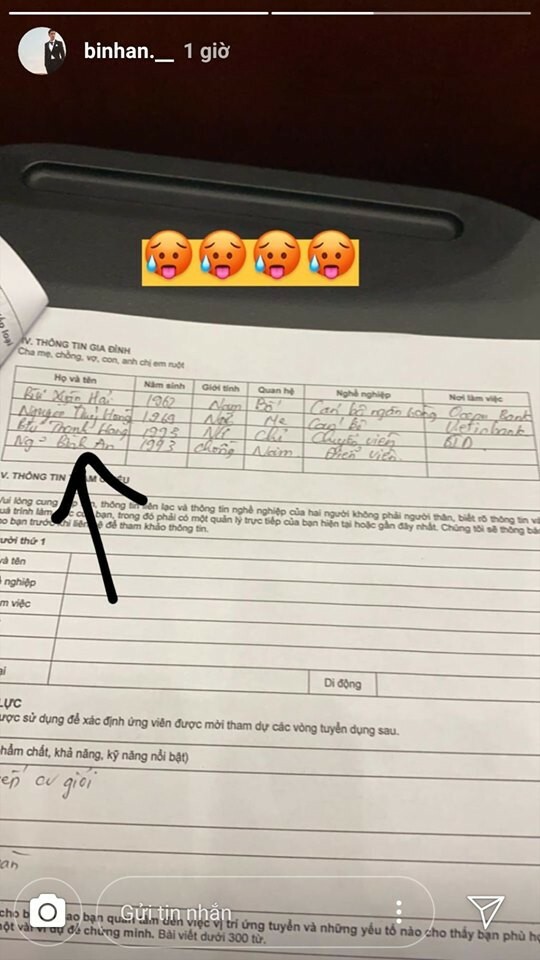 binhan.__ 1 giờ
IV. THÔNG TIN GIA ĐÌNH
Cha mẹ, chồng, vợ, con, anh chị em ruột
Họ và tên Năm sinh Giới tính Quan hệ Nghề nghiệp Nơi làm việc
Bùi Xuân Hải 1962 Nam Bố Cán bộ ngân hàng Bank
Nguyễn Thu Hằng 1969 Nữ Mẹ Cán bộ Vietinbank
Bùi Thanh Hằng 1995 Nữ Chị Chuyên viên
Ng Bình An 1993 Chồng Nam Diễn viên
V. THÔNG TIN
Vui lòng cung tin liên lạc và thông tin nghề nghiệp của hai người không phải người thân, biết rõ thông tin
làm trong đó phải có một quản lý trực tiếp của bạn hiện tại hoặc gần đây nhất. Chúng tôi sẽ thông
bạn trước khi liên hệ để tham khảo thông tin.
thứ 1
và tên
nghiệp
việc
Di động
LỰC
được sử dụng để xác định ứng viên được mời tham dự các vòng tuyển dụng sau.
chất, khả năng, kỹ năng nổi bật)
cv giới
cho bạn quan tâm đến việc vị trí ứng tuyển và những yếu tố nào cho thấy bạn phù
một vài ví dụ để chứng minh. Bài viết dưới 300 từ.
Gửi tin nhắn